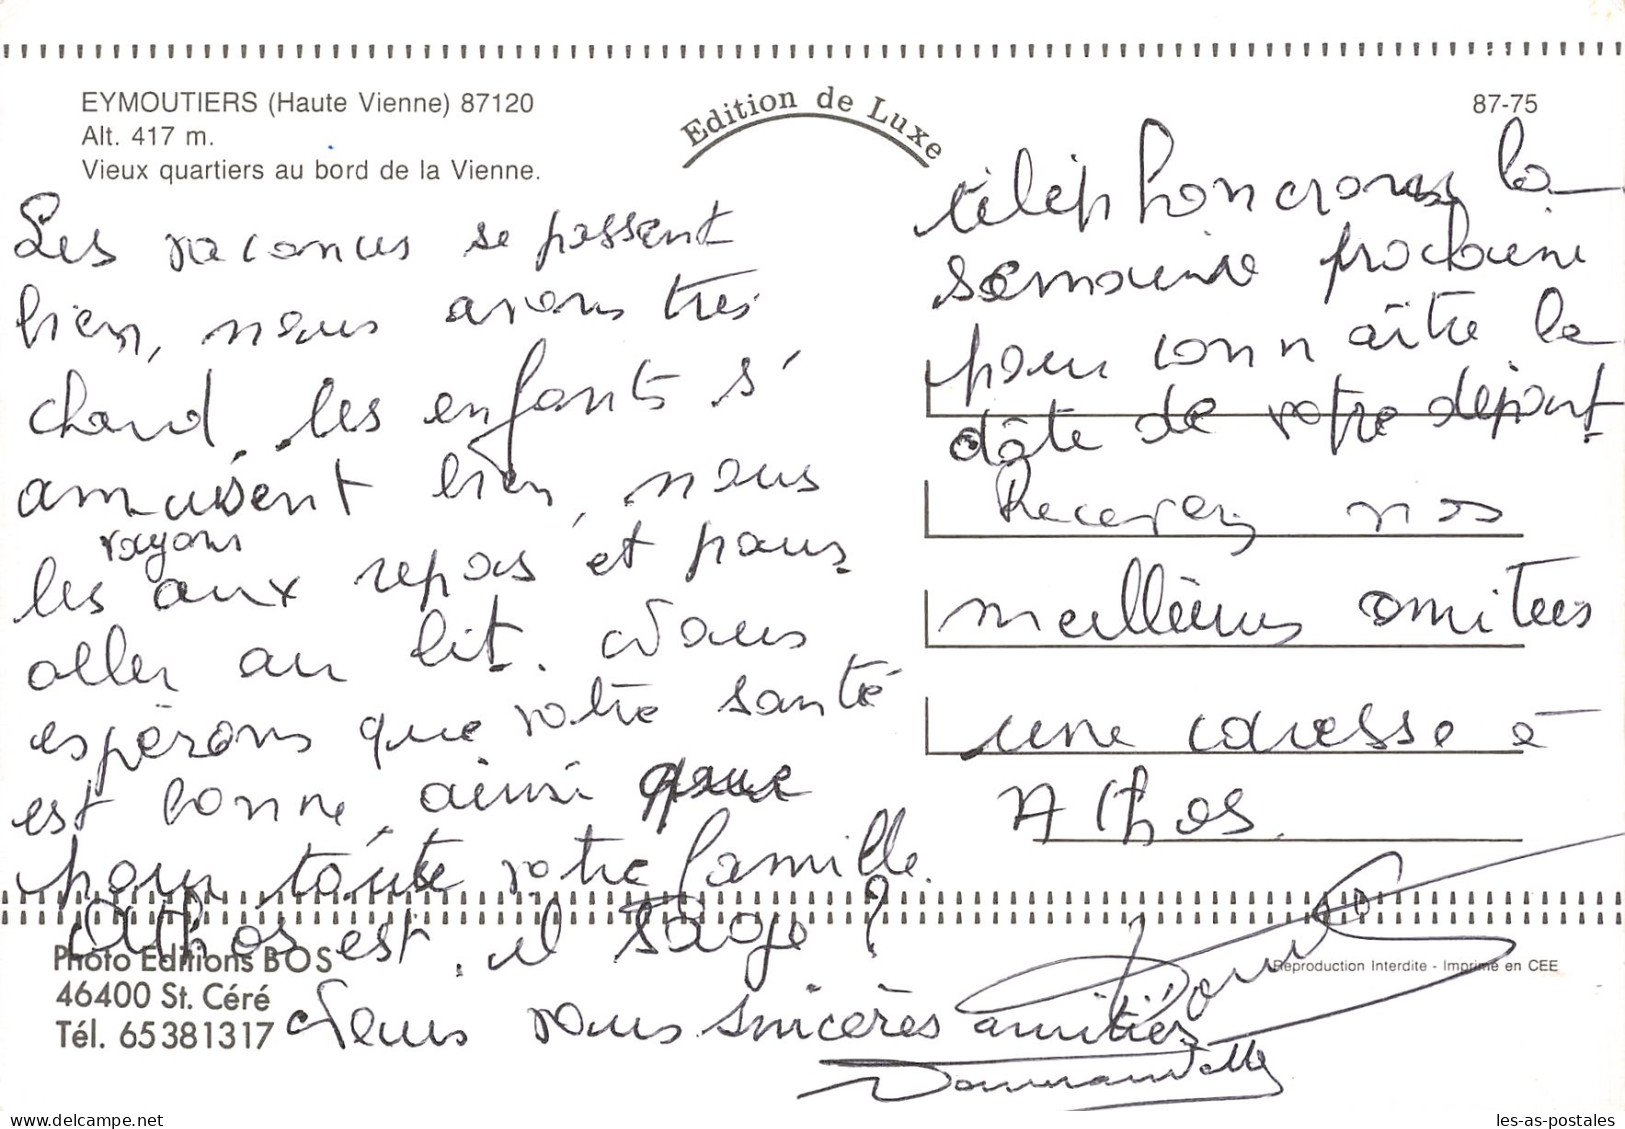 EYMOUTIERS (Haute Vienne) 87120
Alt. 417 m.
Vieux quartiers au bord de la Vienne.
Edition de Luxe
87-75
Les vacances se passent
bien, nous avons très
chaud, les enfants s'
amusent bien, nous
rayons
les aux repas et pour
aller au lit. Nous
espèrons que votre santé
est bonne, ainsi que
pour toute votre famille.
Athos est-il sage ?
vous sincères amitiés
téléphonerons la
semaine prochaine
pour connaître la
dâte de votre départ
Recevez nos
meillèures amitées
une caresse à
Athos.
Photo Editions BOS
46400 St. Céré
Tél. 65381317
Reproduction Interdite - Imprimé en CEE
les-as-postales
My-postcards.net